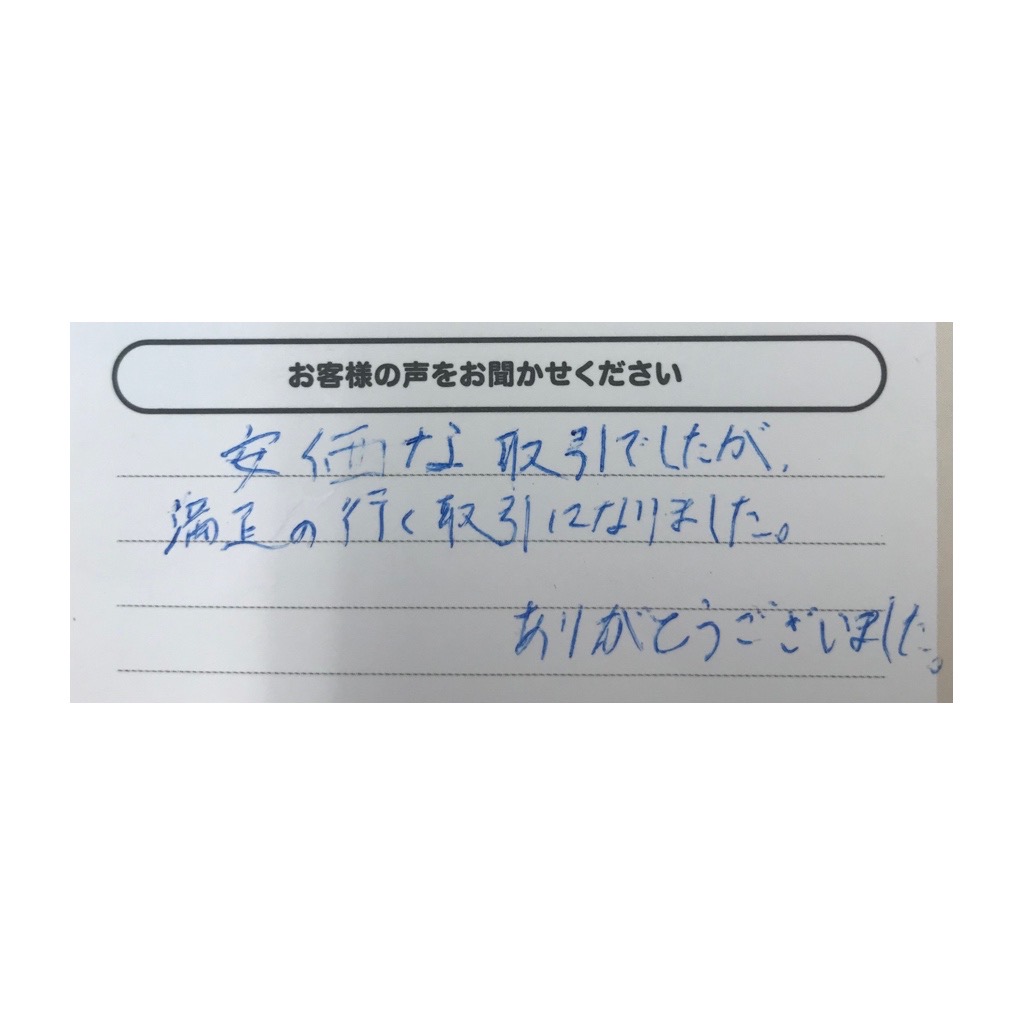 お客様の声をお聞かせください
安価な取引でしたが、
満足の行く取引になりました。
ありがとうございました。